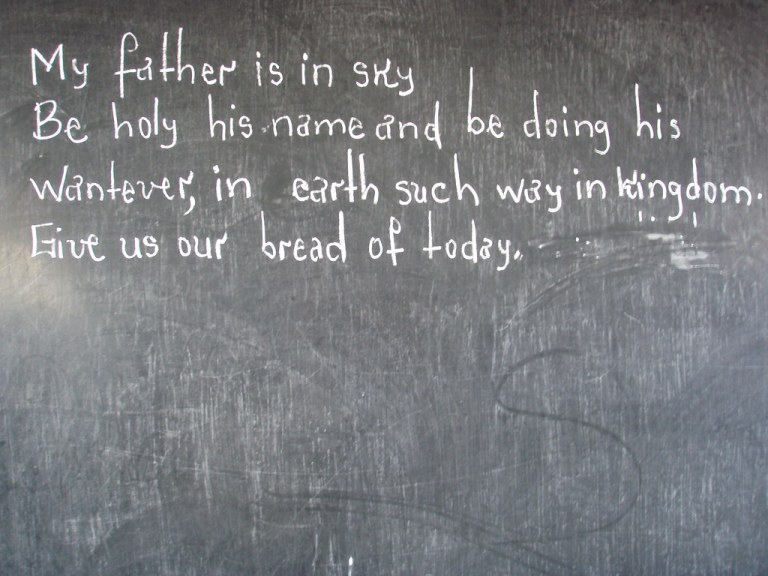 My father is in sky
Be holy his name and be doing his
Wantever, in earth such way in kingdom.
Give us our bread of today.